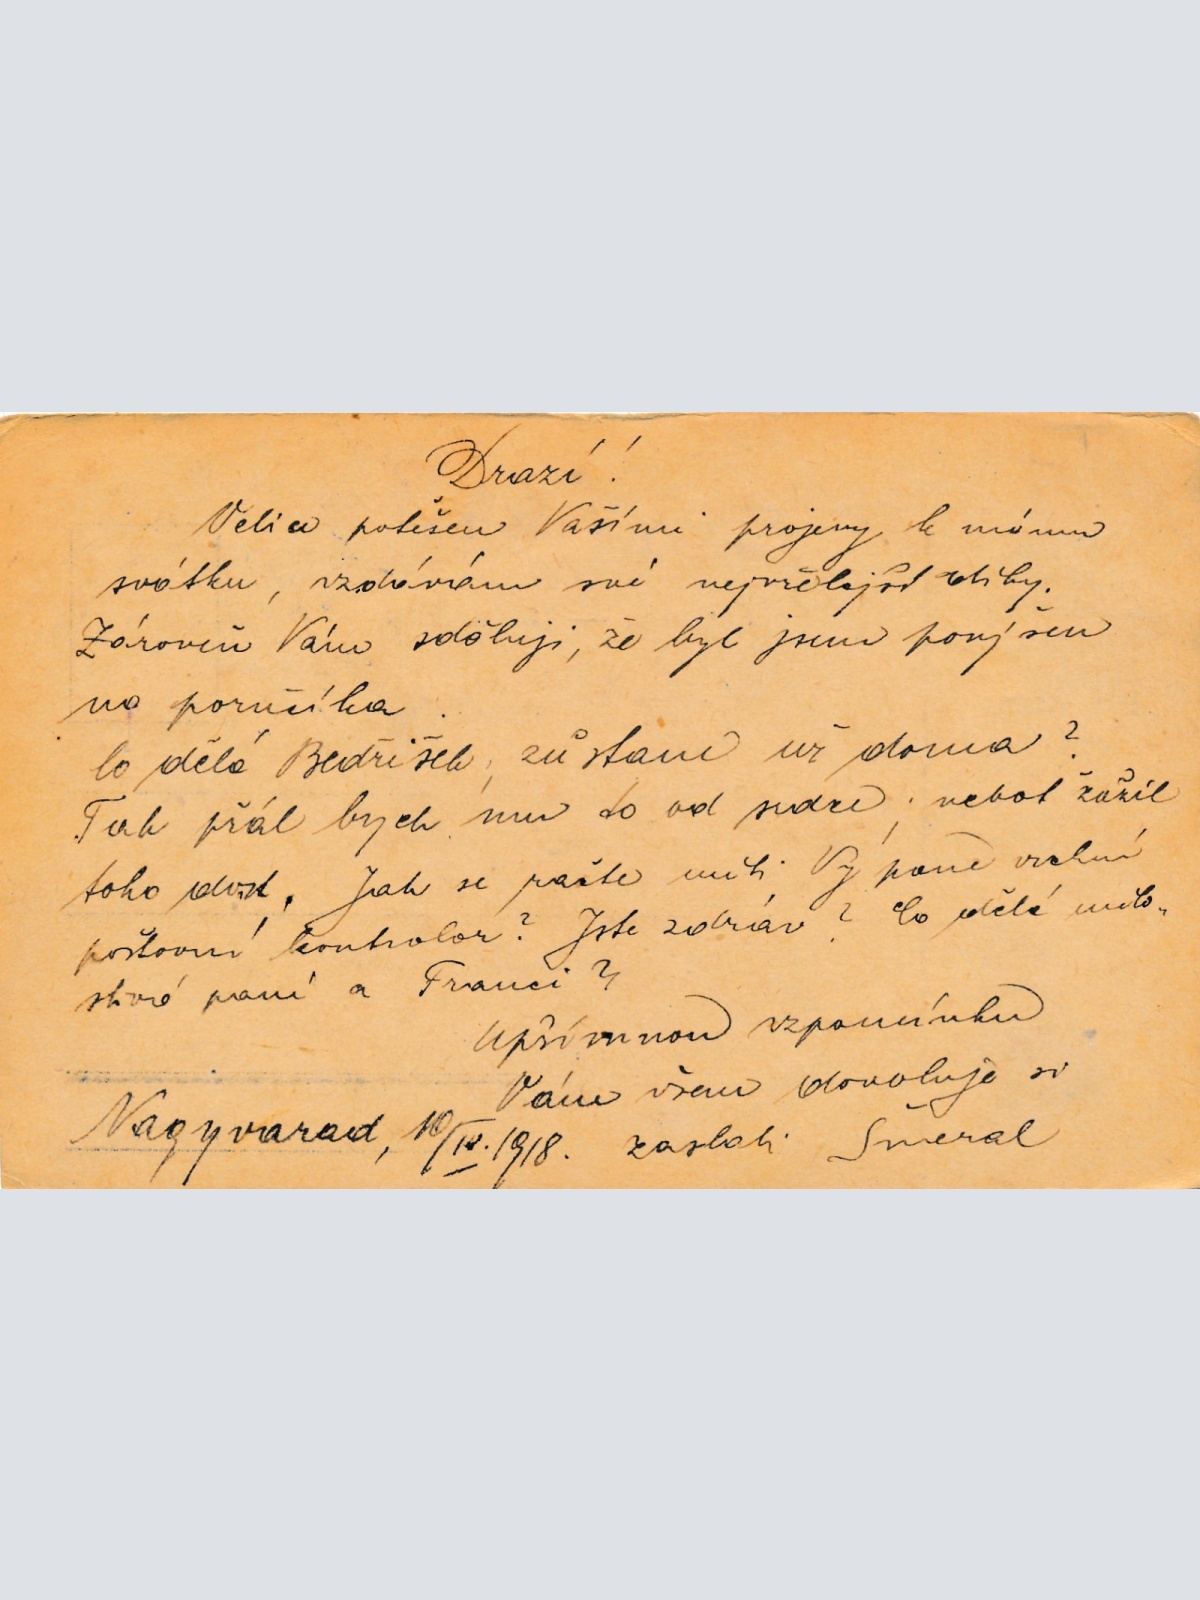 Drazí!
Velice potěšen Vašími projevy k mému
svátku, vzdávám své nejvřelejší díky.
Zároveň Vám sděluji, že byl jsem povýšen
na poručíka.
Co dělá Bedříšek, zůstane už doma?
Tak přál bych mu to od srdce, neboť zažil
toho dost. Jak se račte míti Vý pane vrchní
poštovní kontrolor? Jste zdráv? Co dělá milo-
stivá paní a Franci?
Upřímnou vzpomínku
Vám všem dovoluje si
Nagyvarad, 10/IV. 1918. zaslati Šmeral